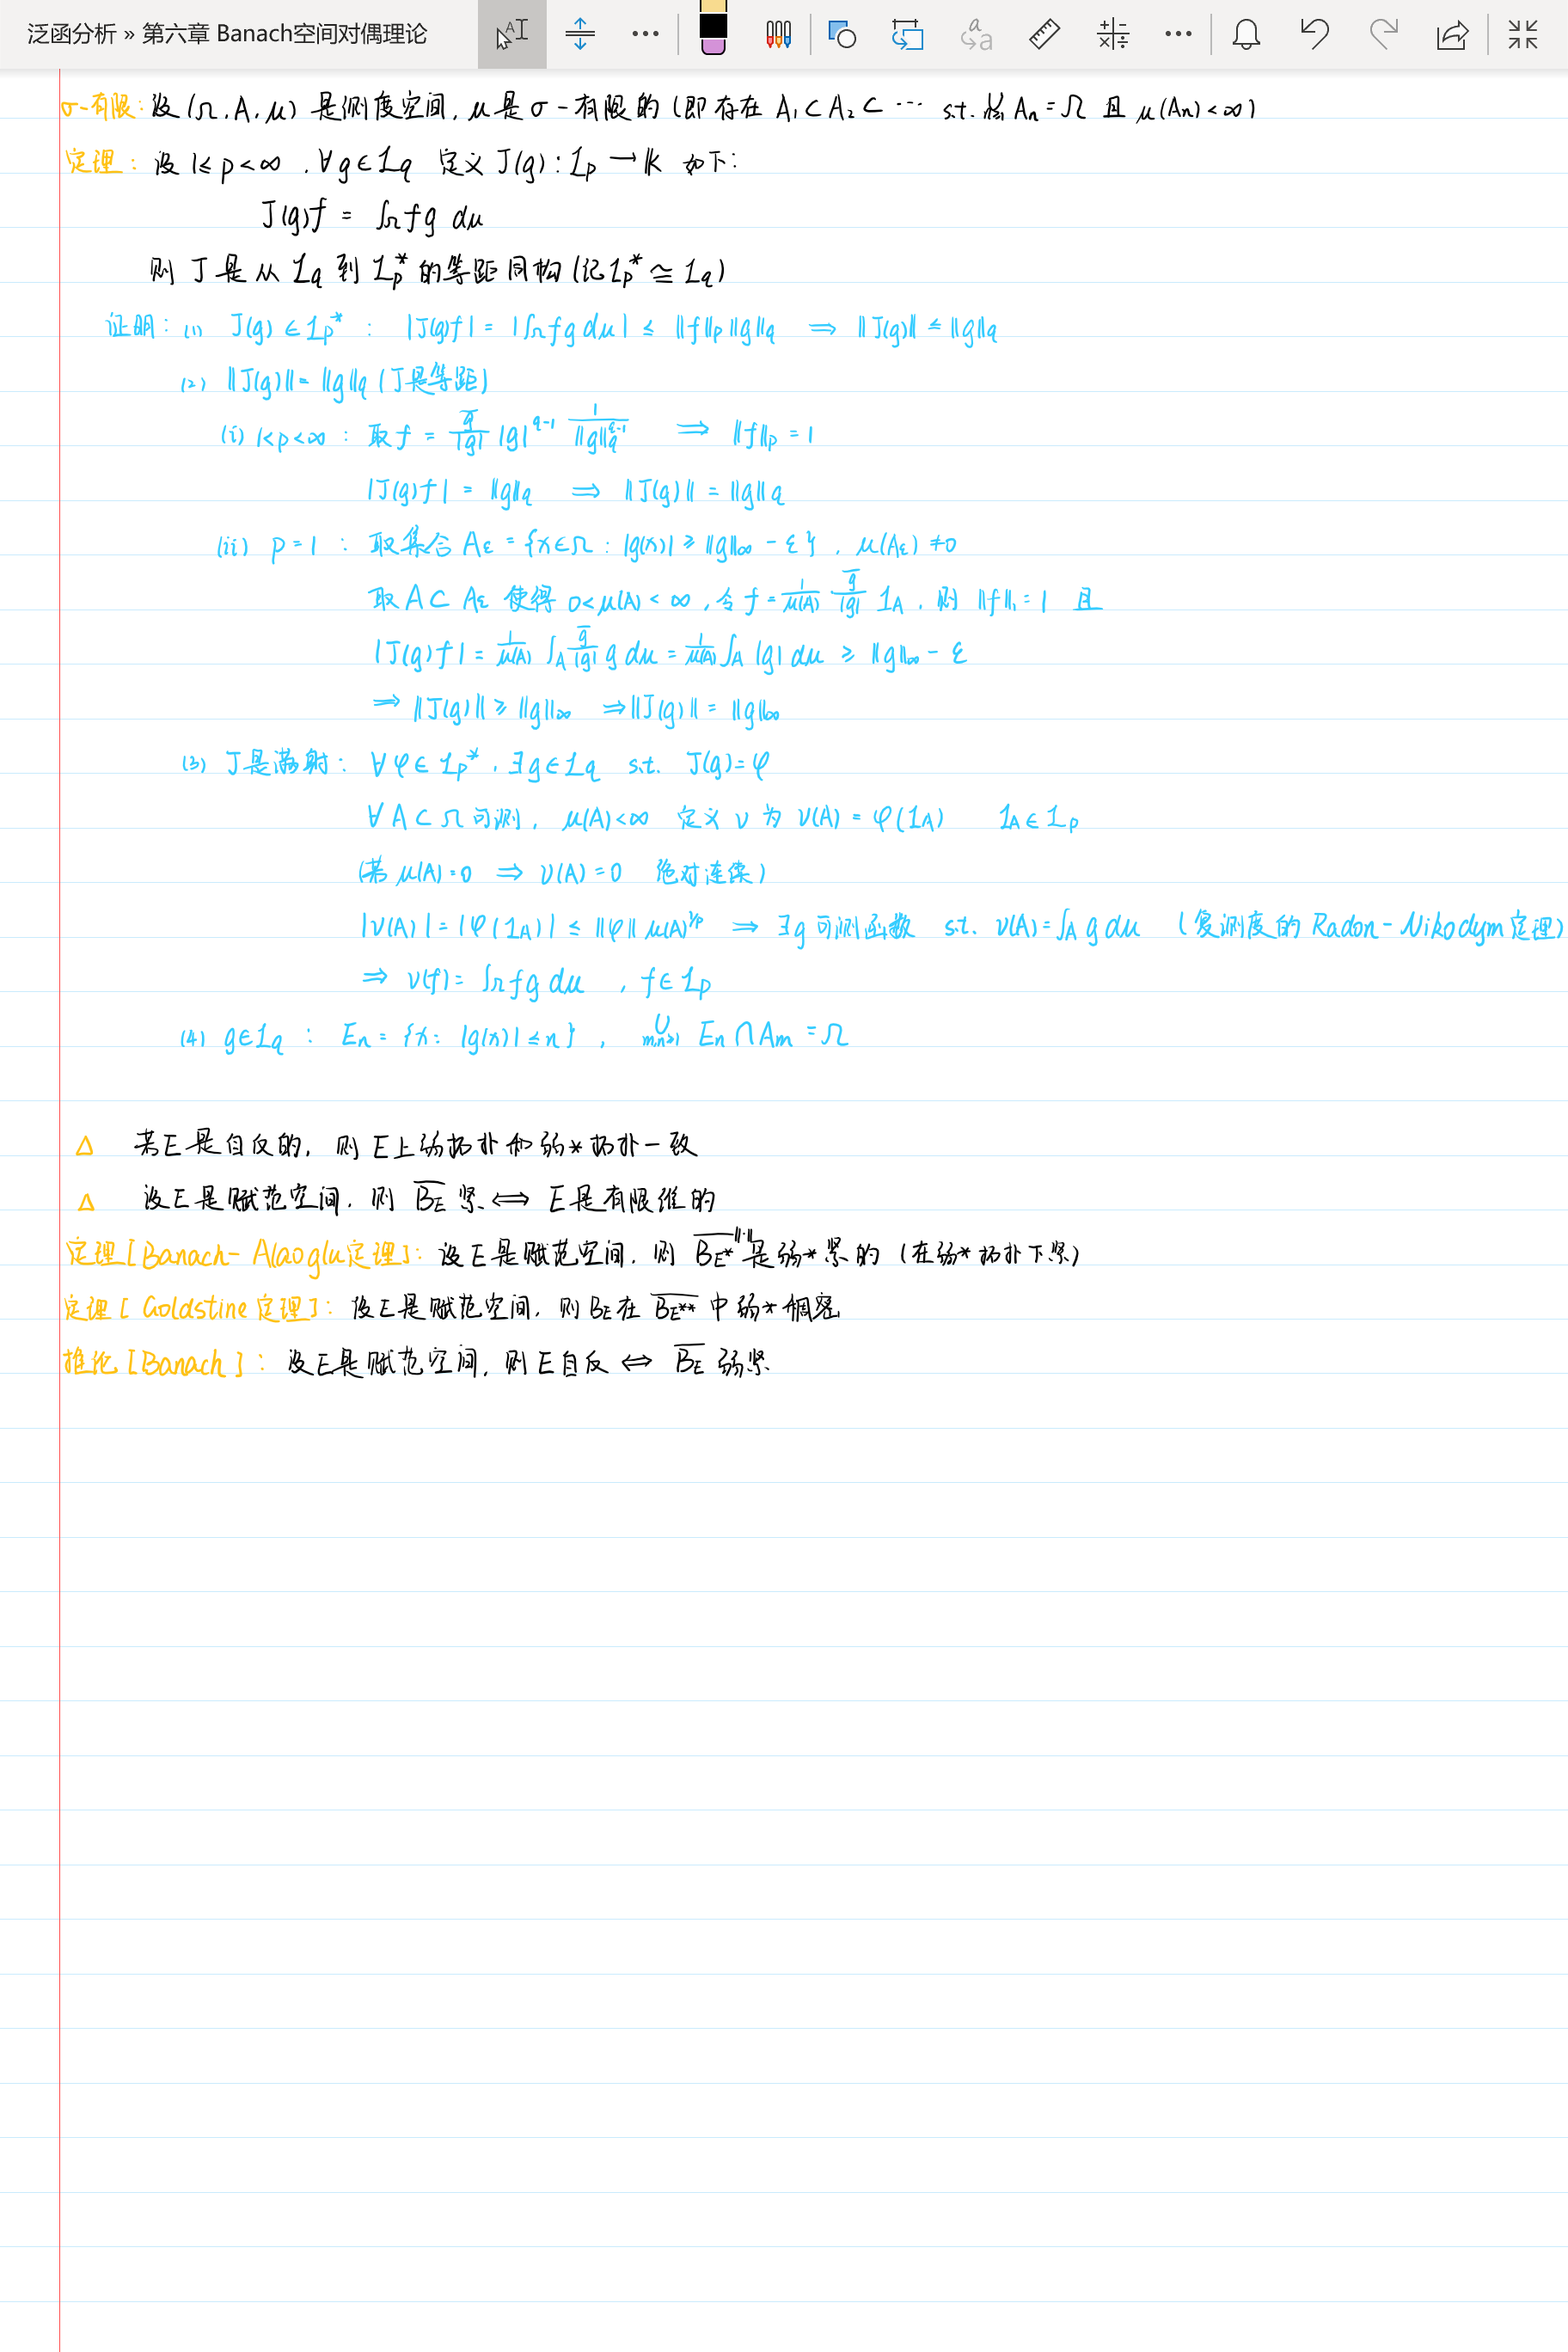 泛函分析 » 第六章 Banach空间对偶理论
σ-有限: 设 (Ω, A, μ) 是测度空间, μ是σ-有限的 (即存在 A₁⊂A₂⊂⋯ s.t. ∪ₙ Aₙ=Ω 且 μ(Aₙ)<∞)
定理: 设 1≤p<∞, ∀g∈L_q 定义 J(g): L_p→𝕂 如下:
J(g)f = ∫_Ω fg dμ
则 J 是从 L_q 到 L_p* 的等距同构 (记 L_p*≃L_q)
证明: (1) J(g)∈L_p* : |J(g)f| = |∫_Ω fg dμ| ≤ ‖f‖_p‖g‖_q ⟹ ‖J(g)‖≤‖g‖_q
(2) ‖J(g)‖=‖g‖_q (J是等距)
(i) 1<p<∞ : 取 f = \frac{\overline{g}}{|g|} |g|^{q-1} \frac{1}{‖g‖_q^{q-1}} ⟹ ‖f‖_p = 1
|J(g)f| = ‖g‖_q ⟹ ‖J(g)‖ = ‖g‖_q
(ii) p=1 : 取集合 A_ε = {x∈Ω : |g(x)| ≥ ‖g‖_∞ - ε}, μ(A_ε)≠0
取 A⊂A_ε 使得 0<μ(A)<∞, 令 f = \frac{1}{μ(A)} \frac{\overline{g}}{|g|} 1_A, 则 ‖f‖₁=1 且
|J(g)f| = \frac{1}{μ(A)} ∫_A \frac{\overline{g}}{|g|} g dμ = \frac{1}{μ(A)} ∫_A |g| dμ ≥ ‖g‖_∞ - ε
⟹ ‖J(g)‖ ≥ ‖g‖_∞ ⟹ ‖J(g)‖ = ‖g‖_∞
(3) J是满射: ∀φ∈L_p*, ∃g∈L_q s.t. J(g)=φ
∀A⊂Ω可测, μ(A)<∞ 定义 ν 为 ν(A) = φ(1_A) 1_A∈L_p
(若 μ(A)=0 ⟹ ν(A)=0 绝对连续)
|ν(A)| = |φ(1_A)| ≤ ‖φ‖ μ(A)^{1/p} ⟹ ∃g 可测函数 s.t. ν(A)=∫_A g dμ (复测度的 Radon-Nikodym 定理)
⟹ ν(f) = ∫_Ω fg dμ , f∈L_p
(4) g∈L_q : E_n = {x: |g(x)|≤n}, ∪_{m,n≥1} E_n∩A_m = Ω
Δ 若E是自反的, 则E上弱拓扑和弱*拓扑一致
Δ 设E是赋范空间, 则 \overline{B_E} 紧 ⟺ E是有限维的
定理[Banach-Alaoglu定理]: 设E是赋范空间, 则 \overline{B_{E*}}^{‖·‖} 是弱*紧的 (在弱*拓扑下紧)
定理[Goldstine定理]: 设E是赋范空间, 则 B_E 在 \overline{B_{E**}} 中弱*稠密
推论[Banach]: 设E是赋范空间, 则E自反 ⟺ \overline{B_E} 弱紧